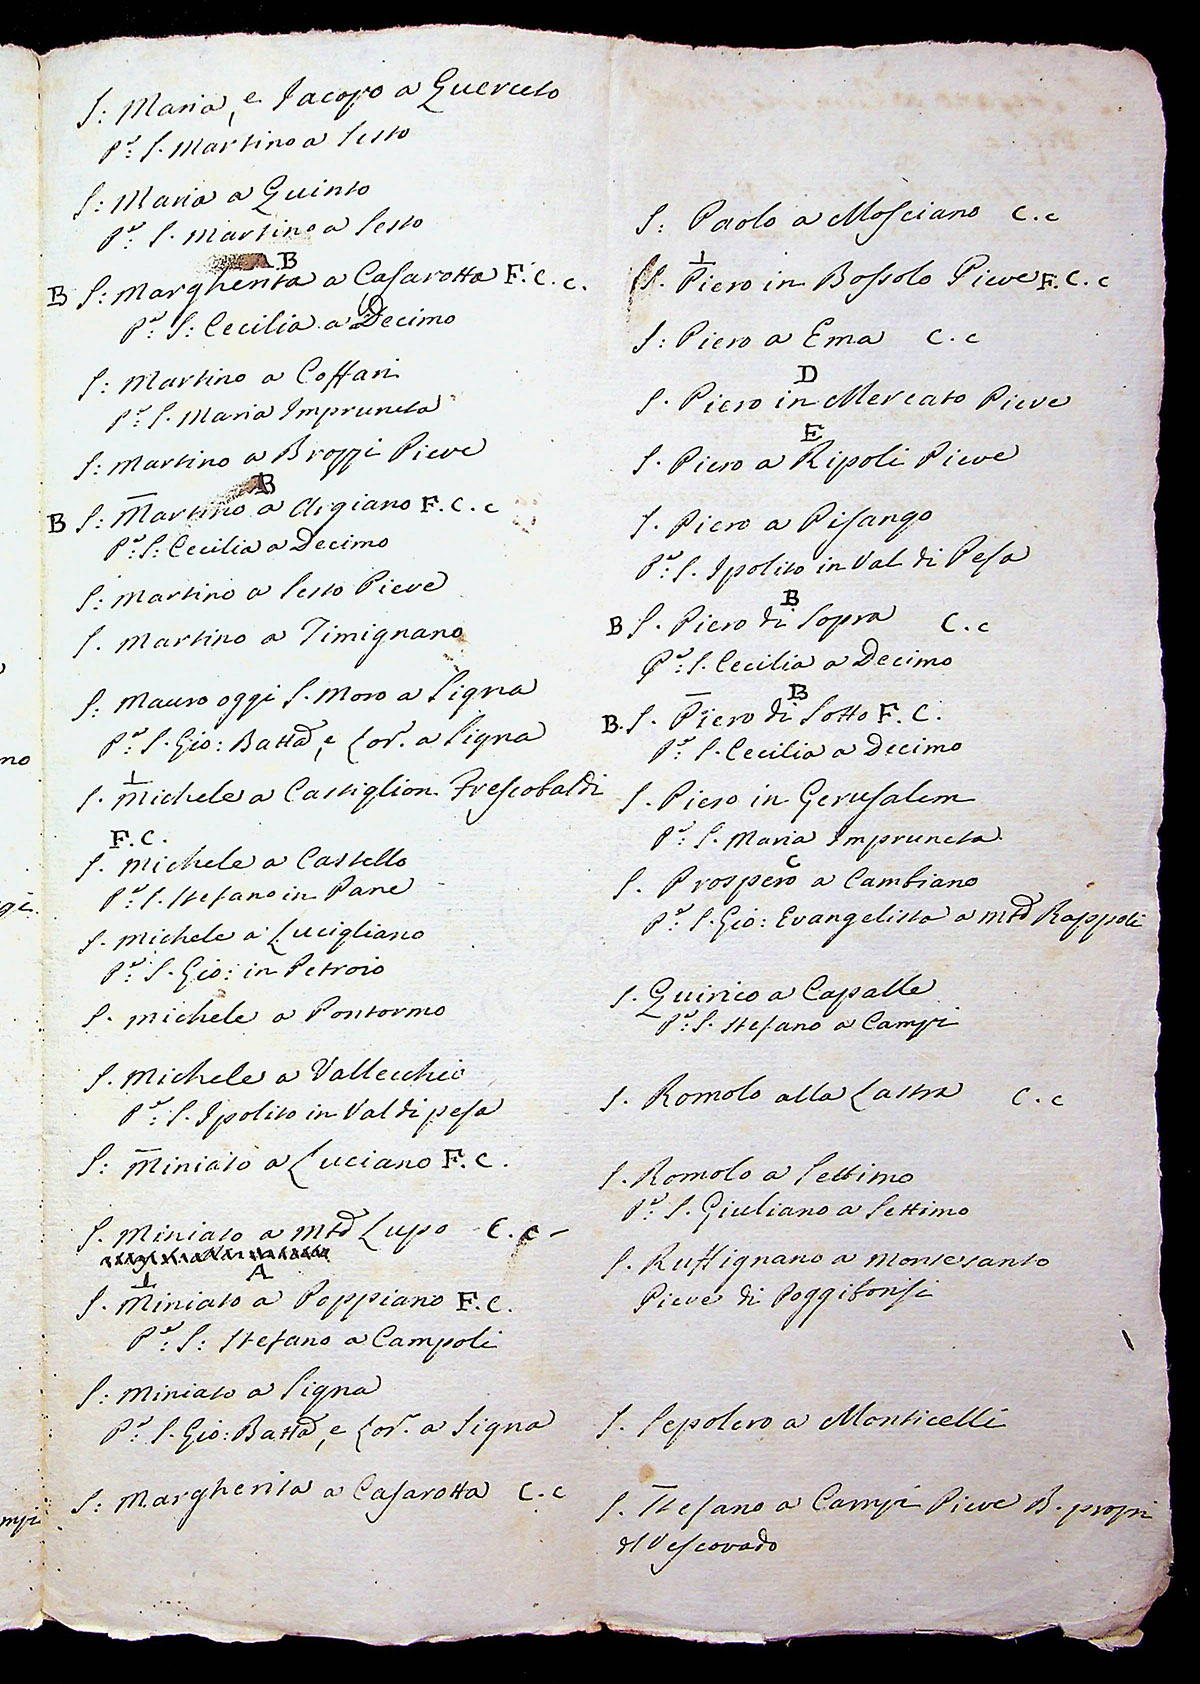 S: Maria, e Jacopo a Querceto
Pe: S. Martino a Sesto
S: Maria a Quinto
Pe: S. Martino a Sesto
A B
B S: Margherita a Casarotta F. C. c.
Pe: S: Cecilia a Decimo
S: Martino a Coffari
Pe: S. Maria Impruneta
S: Martino a Brozzi Pieve
B
B S: Martino a Argiano F. C. c
Pe: S: Cecilia a Decimo
S: Martino a Sesto Pieve
S. Martino a Timignano
S: Mauro oggi S. Moro a Signa
Pe: S. Gio: Batta, e Lor. a Signa
S. Michele a Castiglion Frescobaldi
F. C.
S. Michele a Castello
Pe: S. Stefano in Pane
S. Michele a Lucigliano
Pe: S. Gio: in Petroio
S. Michele a Pontormo
S. Michele a Vallecchio
Pe: S. Ipolito in Val di pesa
S: Miniato a Luciano F. C.
S. Miniato a Mte Lupo C. c
A
S. Miniato a Poppiano F. C.
Pe: S: Stefano a Campoli
S: Miniato a Signa
Pe: S. Gio: Batta, e Lor. a Signa
S: Margherita a Casarotta C. c
S: Paolo a Mosciano C. c
S. Piero in Bossolo Pieve F. C. c
S: Piero a Ema C. c
D
S. Piero in Mercato Pieve
E
S. Piero a Ripoli Pieve
S. Piero a Pisango
Pe: S. Ipolito in Val di Pesa
B
B S. Piero di Sopra C. c
Pe: S. Cecilia a Decimo
B
B. S. Piero di Sotto F. C.
Pe: S. Cecilia a Decimo
S. Piero in Gerusalem
Pe: S. Maria Impruneta
C
S. Prospero a Cambiano
Pe: S. Gio: Evangelista a Mte Rappoli
S. Quirico a Capalle
Pe: S. Stefano a Campi
S. Romolo alla Lastra C. c
S. Romolo a Settimo
Pe: S. Giuliano a Settimo
S. Ruffignano a Monsesanto
Pieve di Poggibonsi
S. Sepolcro a Monticelli
S. Stefano a Campi Pieve B. propri
del Vescovado